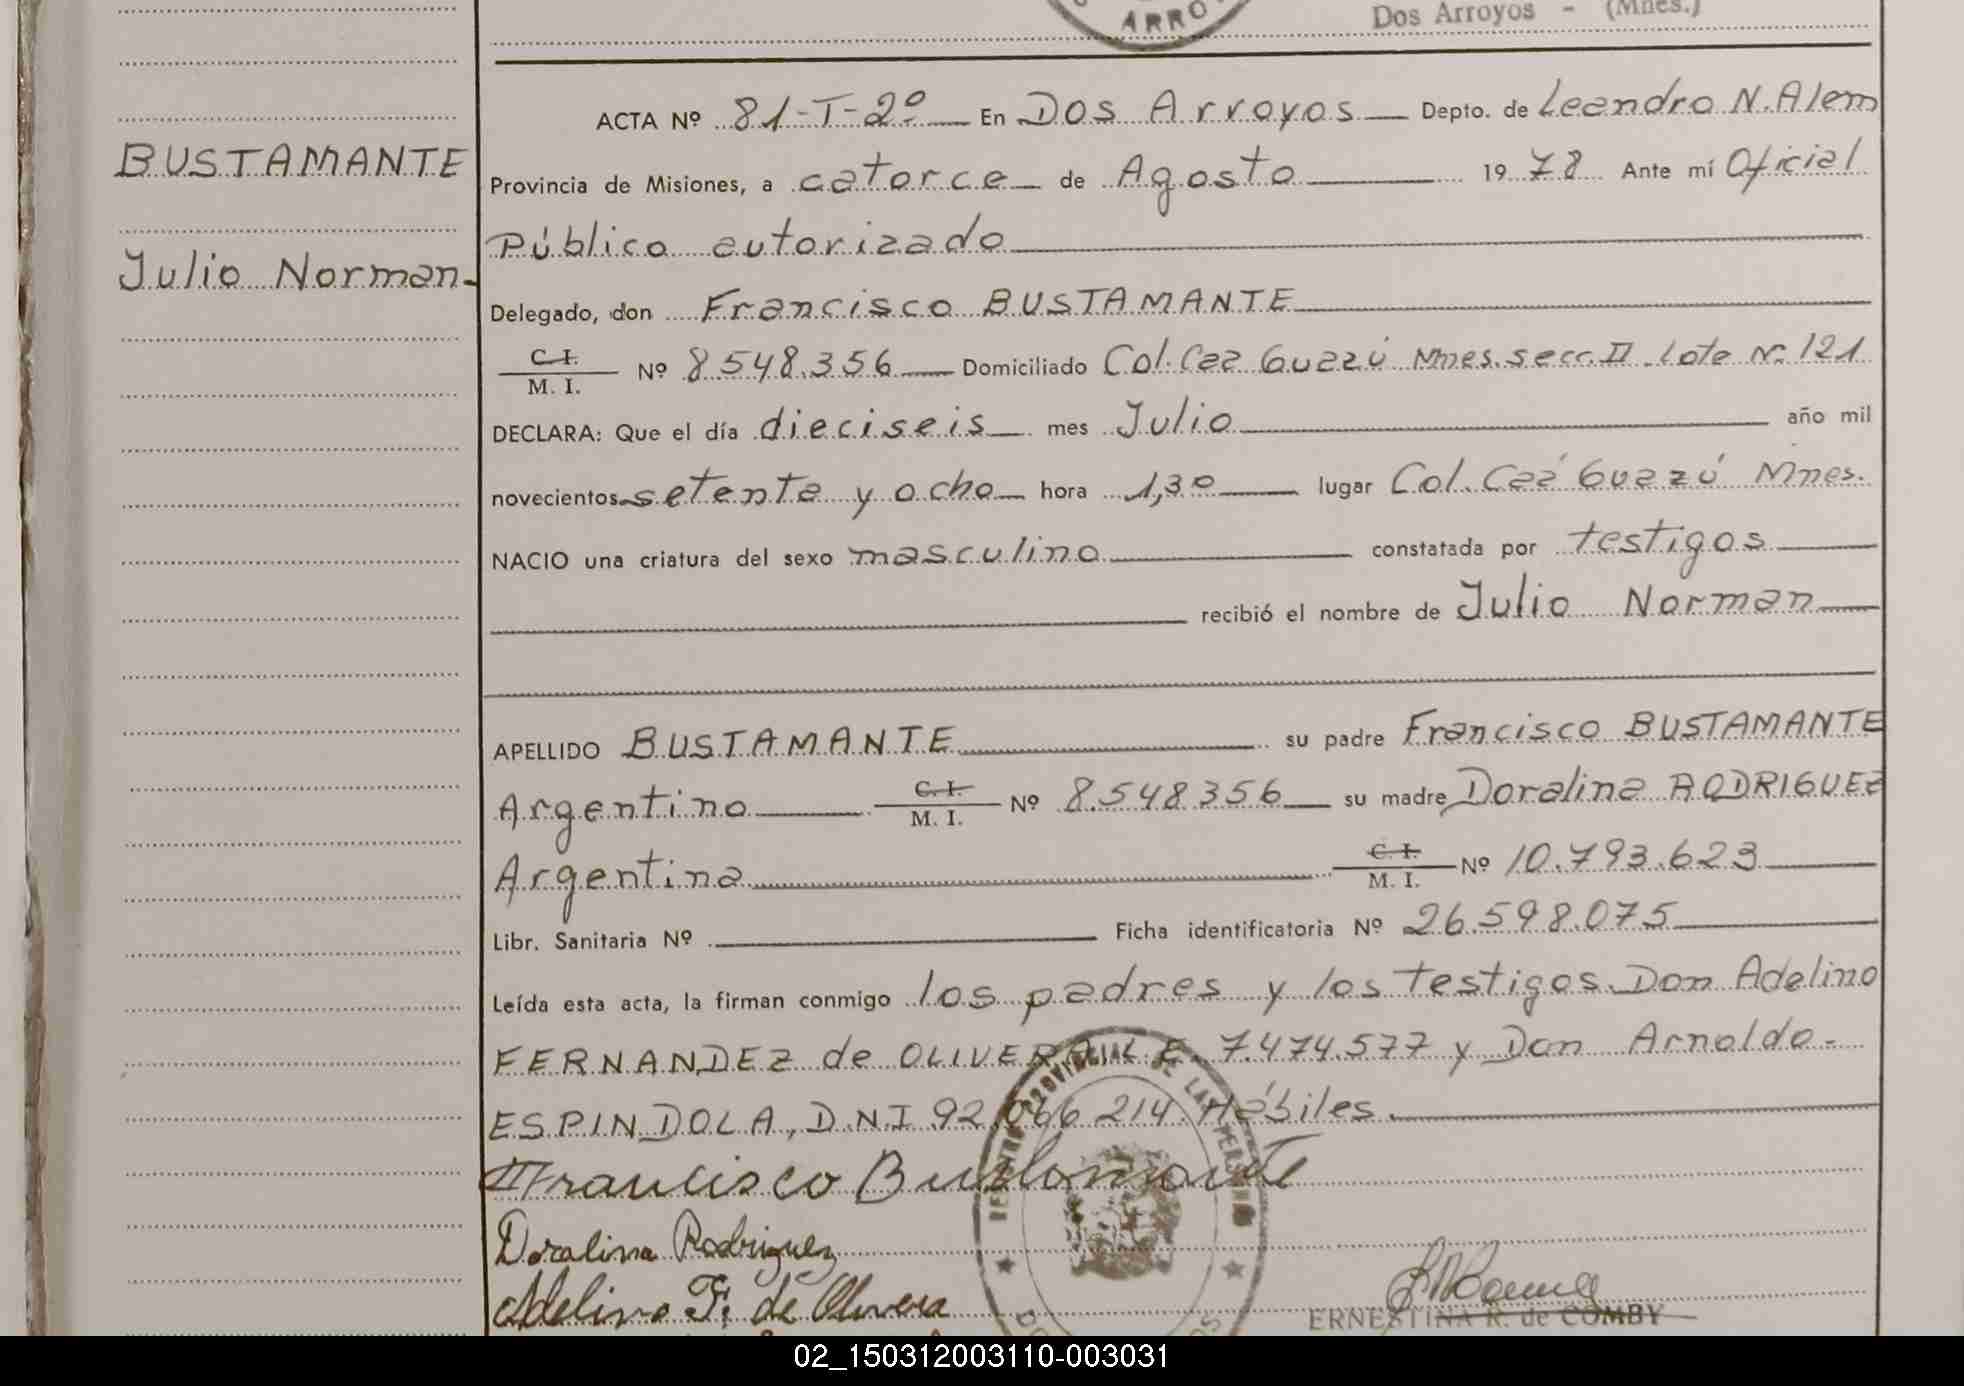 ARRO
Dos Arroyos - (Mnes.)
BUSTAMANTE
Julio Norman-
ACTA Nº 81-T-2º En Dos Arroyos Depto. de Leandro N. Alem
Provincia de Misiones, a catorce de Agosto 1978 Ante mí Oficial
Público autorizado
Delegado, don Francisco BUSTAMANTE
C. I.
M. I. Nº 8.548.356 Domiciliado Col. Caa Guazú Mnes. secc. II lote Nº 121
DECLARA: Que el día dieciseis mes Julio año mil
novecientos setenta y ocho hora 1,30 lugar Col. Caá Guazú Mnes.
NACIO una criatura del sexo masculino constatada por testigos
recibió el nombre de Julio Norman
APELLIDO BUSTAMANTE su padre Francisco BUSTAMANTE
Argentino C. I. M. I. Nº 8.548356 su madre Doralina RODRIGUEZ
Argentina C. I. M. I. Nº 10.793.623
Libr. Sanitaria Nº Ficha identificatoria Nº 26.598.075
Leída esta acta, la firman conmigo los padres y los testigos Don Adelino
FERNANDEZ de OLIVERA L.E. 7.474.577 y Don Arnoldo-
ESPINDOLA, D.N.I. 92.066.214. Hábiles.
Francisco Bustamante
Doralina Rodriguez
Adelino F. de Olivera
ERNESTINA R. de COMBY
02_150312003110-003031